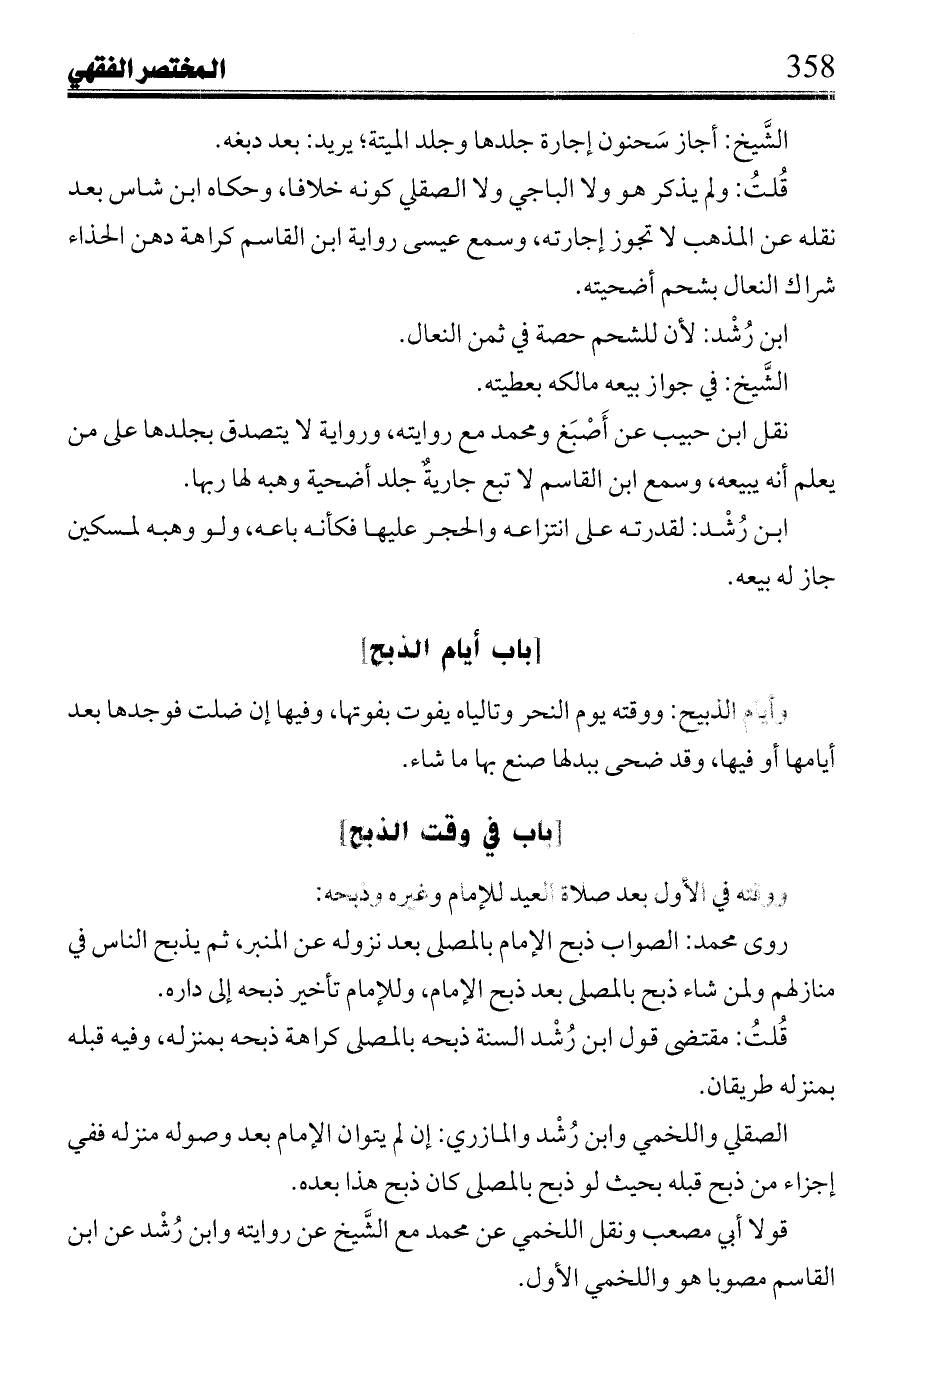 358
المختصر الفقهي
الشَّيخ: أجاز سَحنون إجارة جلدها وجلد الميتة؛ يريد: بعد دبغه.
قُلتُ: ولم يذكر هو ولا الباجي ولا الصقلي كونه خلافا، وحكاه ابن شاس بعد
نقله عن المذهب لا تجوز إجارته، وسمع عيسى رواية ابن القاسم كراهة دهن الحذاء
شراك النعال بشحم أضحيته.
ابن رُشْد: لأن للشحم حصة في ثمن النعال.
الشَّيخ: في جواز بيعه مالكه بعطيته.
نقل ابن حبيب عن أَصْبَغ ومحمد مع روايته، ورواية لا يتصدق بجلدها على من
يعلم أنه يبيعه، وسمع ابن القاسم لا تبع جاريةٌ جلد أضحية وهبه لها ربها.
ابن رُشْد: لقدرته على انتزاعه والحجر عليها فكأنه باعه، ولو وهبه لمسكين
جاز له بيعه.
[باب أيام الذبح]
وأيام الذبيح: ووقته يوم النحر وتالياه يفوت بفوتها، وفيها إن ضلت فوجدها بعد
أيامها أو فيها، وقد ضحى ببدلها صنع بها ما شاء.
[باب في وقت الذبح]
ووقته في الأول بعد صلاة العيد للإمام وغيره وذبحه:
روى محمد: الصواب ذبح الإمام بالمصلى بعد نزوله عن المنبر، ثم يذبح الناس في
منازلهم ولمن شاء ذبح بالمصلى بعد ذبح الإمام، وللإمام تأخير ذبحه إلى داره.
قُلتُ: مقتضى قول ابن رُشْد السنة ذبحه بالمصلى كراهة ذبحه بمنزله، وفيه قبله
بمنزله طريقان.
الصقلي واللخمي وابن رُشْد والمازري: إن لم يتوان الإمام بعد وصوله منزله ففي
إجزاء من ذبح قبله بحيث لو ذبح بالمصلى كان ذبح هذا بعده.
قولا أبي مصعب ونقل اللخمي عن محمد مع الشَّيخ عن روايته وابن رُشْد عن ابن
القاسم مصوبا هو واللخمي الأول.